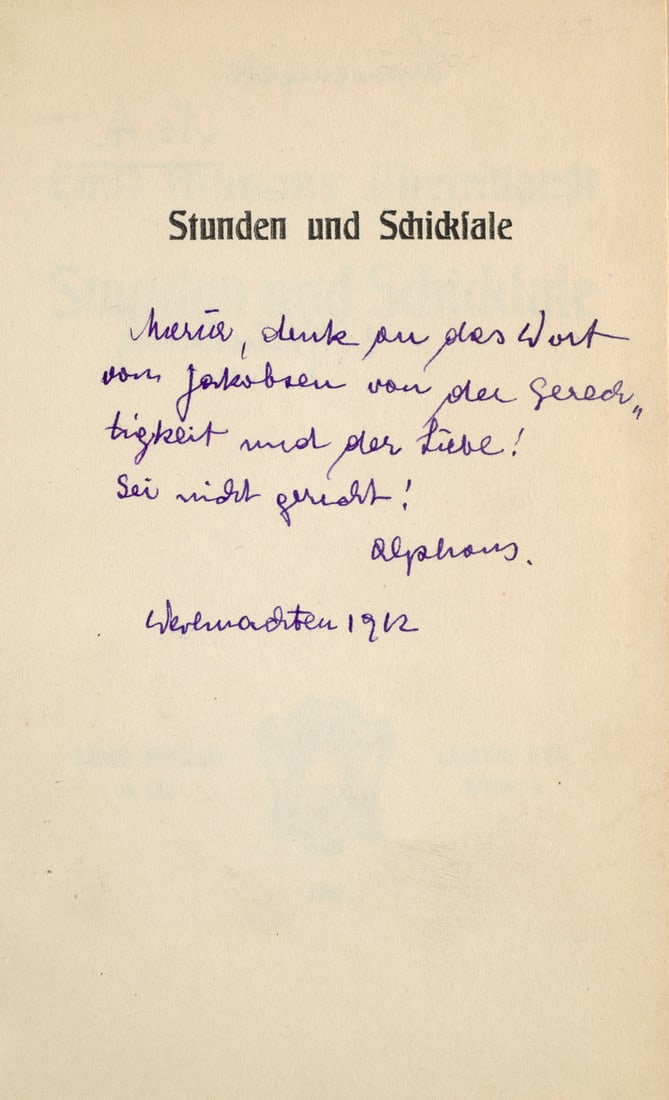 Stunden und Schickſale
Maria, denk an das Wort
vom Jakobsen von der Gerech„
tigkeit und der Liebe!
Sei nicht gerecht!
Alphons.
Weihnachten 1912